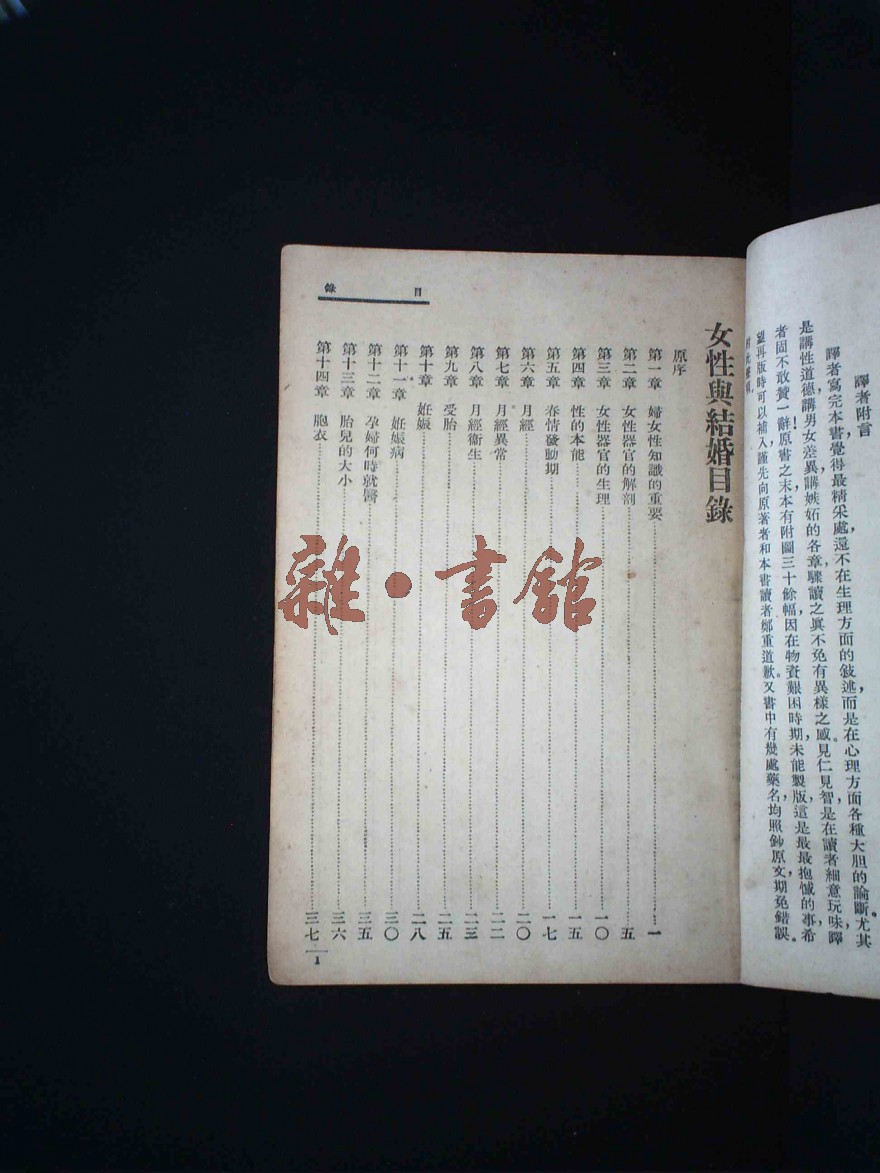 譯者附言
譯者寫完本書，覺得最精采處，還不在生理方面的敍述，而是在心理方面各種大胆的論斷。尤其
是講性道德講男女差異講嫉妬的各章，驟讀之眞不免有異樣之感。見仁見智，是在讀者細意玩味，譯
者固不敢贊一辭！原書之末，本有附圖三十餘幅，因在物資艱困時期，未能製版，這是最最抱憾的事，希
望再版時可以補入，謹先向原著者和本書讀者鄭重道歉。又書中有幾處藥名，均照鈔原文，期免錯誤。
女性與結婚目錄
原序
第一章 婦女性知識的重要 一
第二章 女性器官的解剖 五
第三章 女性器官的生理 一〇
第四章 性的本能 一五
第五章 春情發動期 一七
第六章 月經 二〇
第七章 月經異常 二二
第八章 月經衞生 二三
第九章 受胎 二五
第十章 妊娠 二八
第十一章 妊娠病 三〇
第十二章 孕婦何時就醫 三五
第十三章 胎兒的大小 三六
第十四章 胞衣 三七
目錄
1
雜·書館